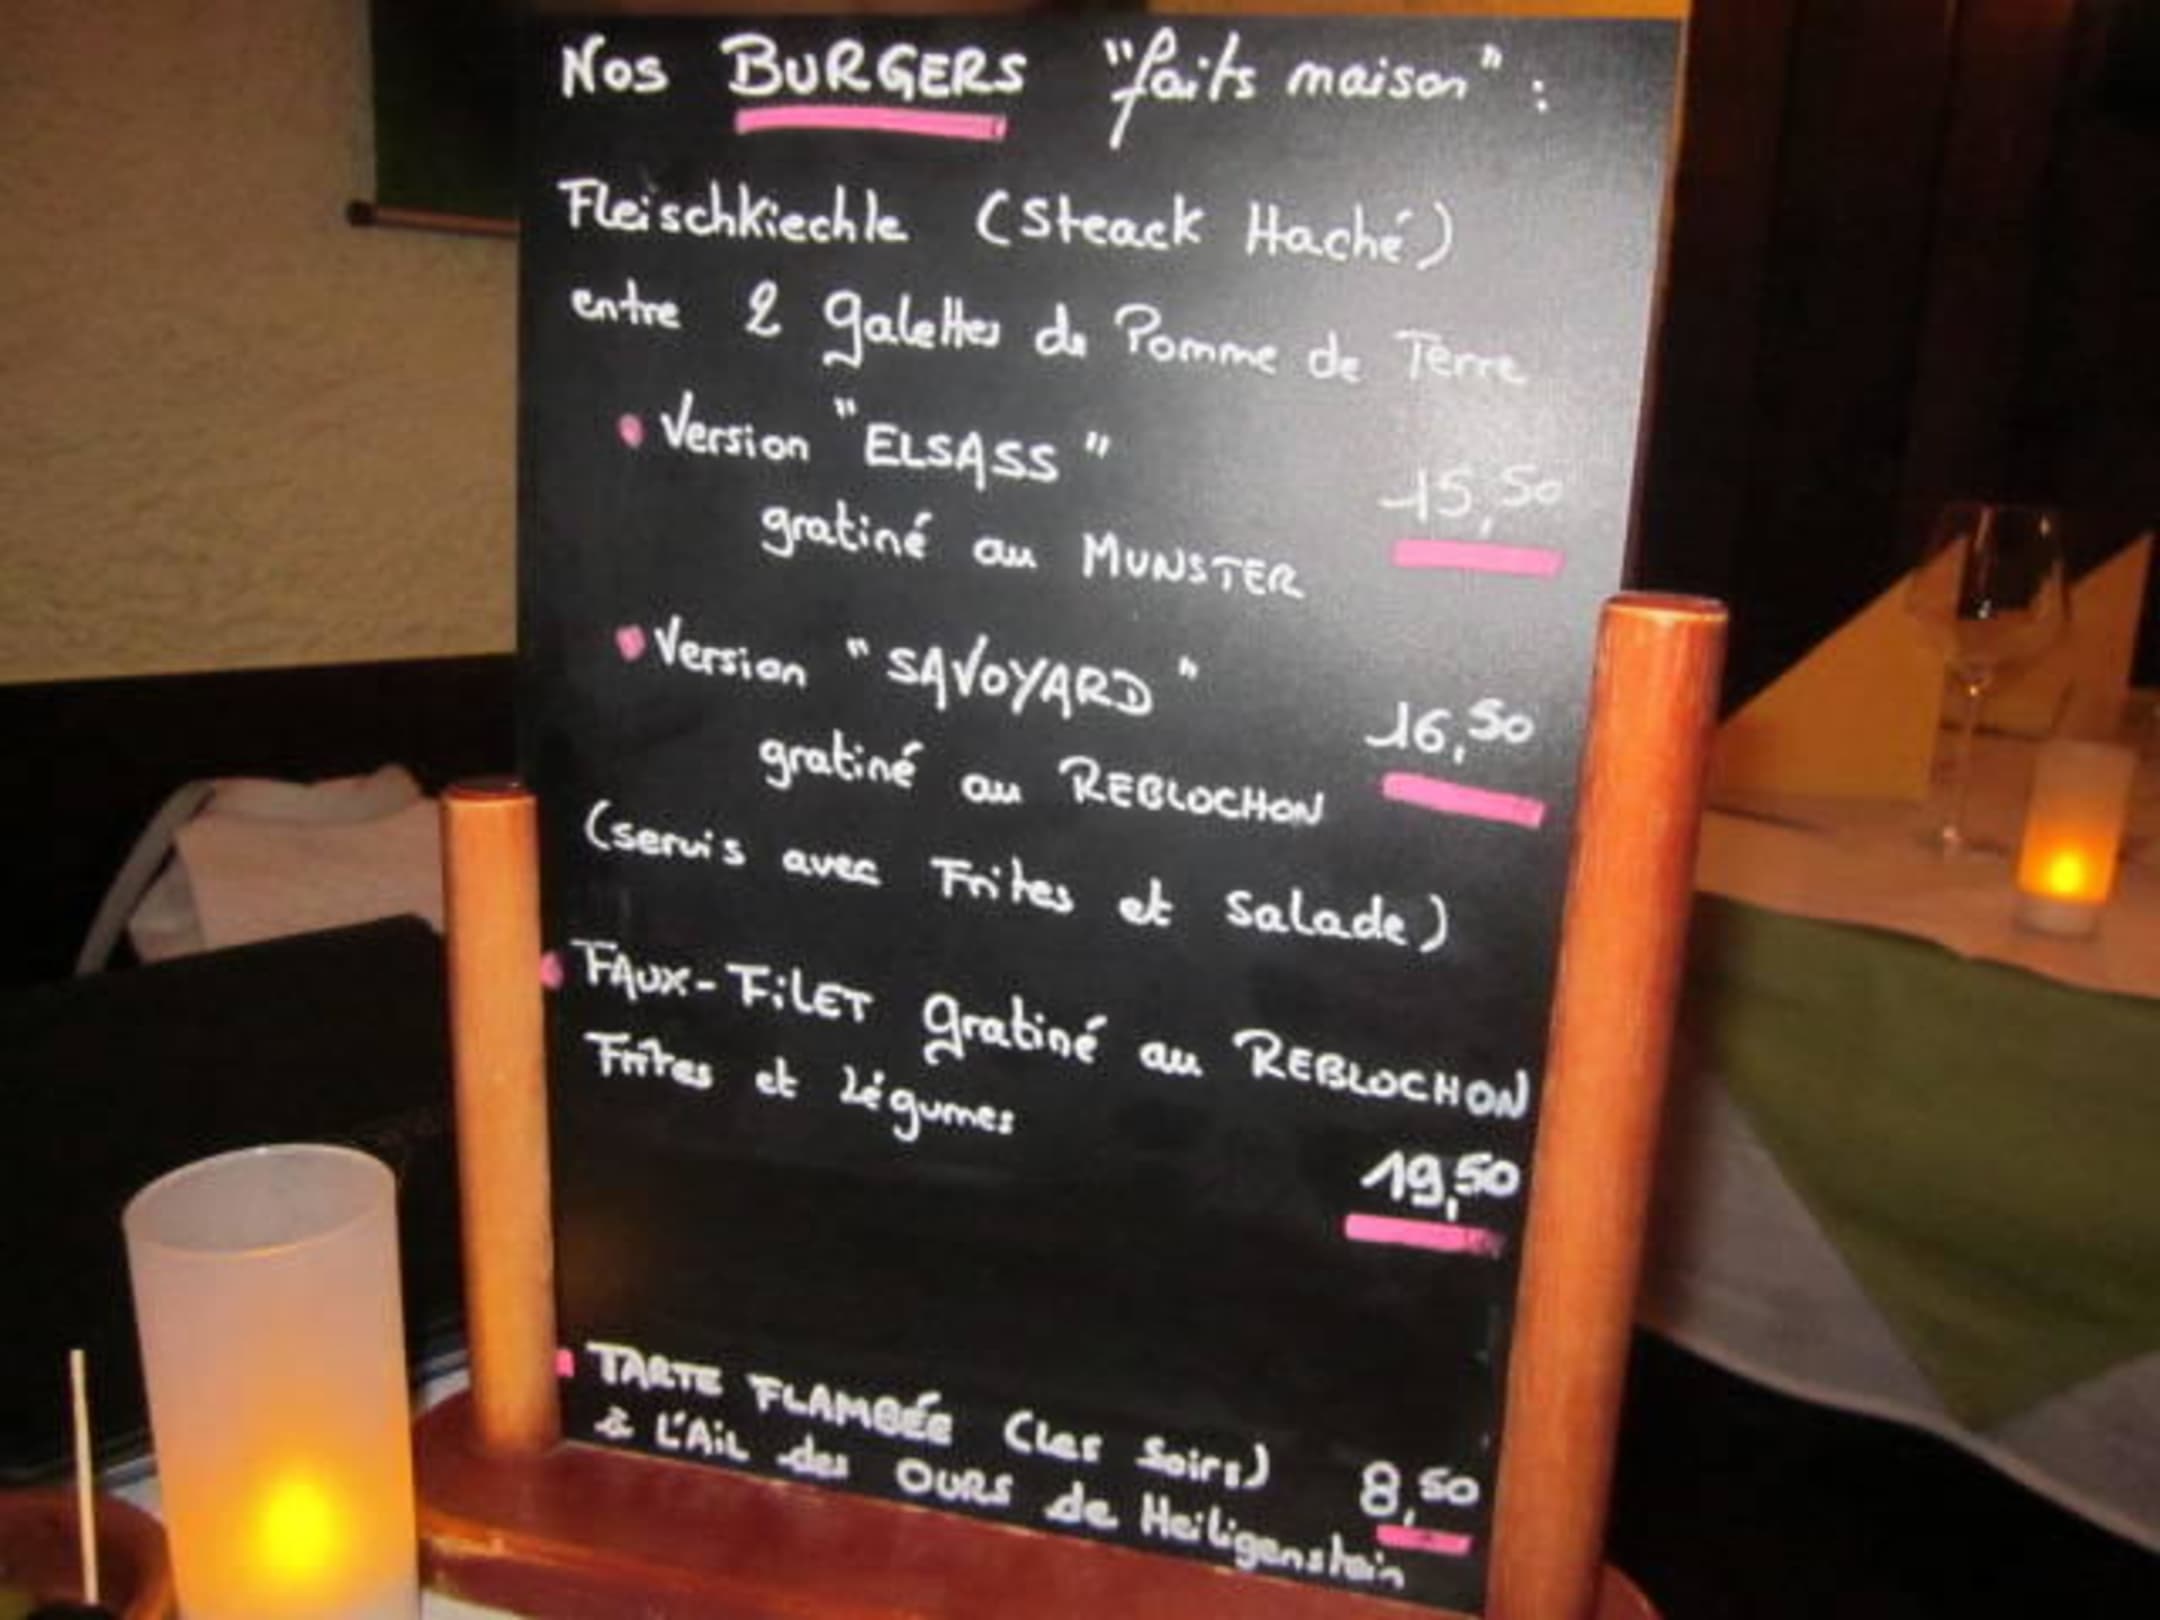 Nos BURGERS "faits maison" :
Fleischkiechle (Steack Haché)
entre 2 galettes de Pomme de Terre
• Version "ELSASS"
15,50
gratiné au MUNSTER
• Version "SAVOYARD"
16,50
gratiné au REBLOCHON
(servis avec Frites et Salade)
• FAUX-FiLET gratiné au REBLOCHON
Frites et Légumes
19,50
• TARTE FLAMBÉE (les Soirs) 8,50
à L'AiL des OURS de Heiligenstein